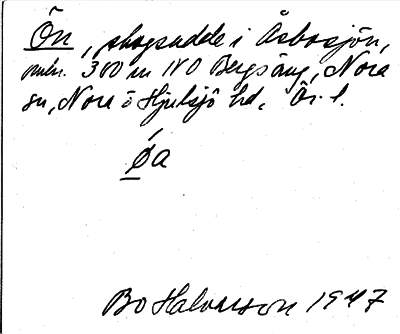 Ön, skogsudde i Åsbosjön,
omkr. 300 m NO Bergsäng, Nora
sn, Nora o Hjulsjö hd, Ör. l.
ǿa
Bo Halvarson 1947